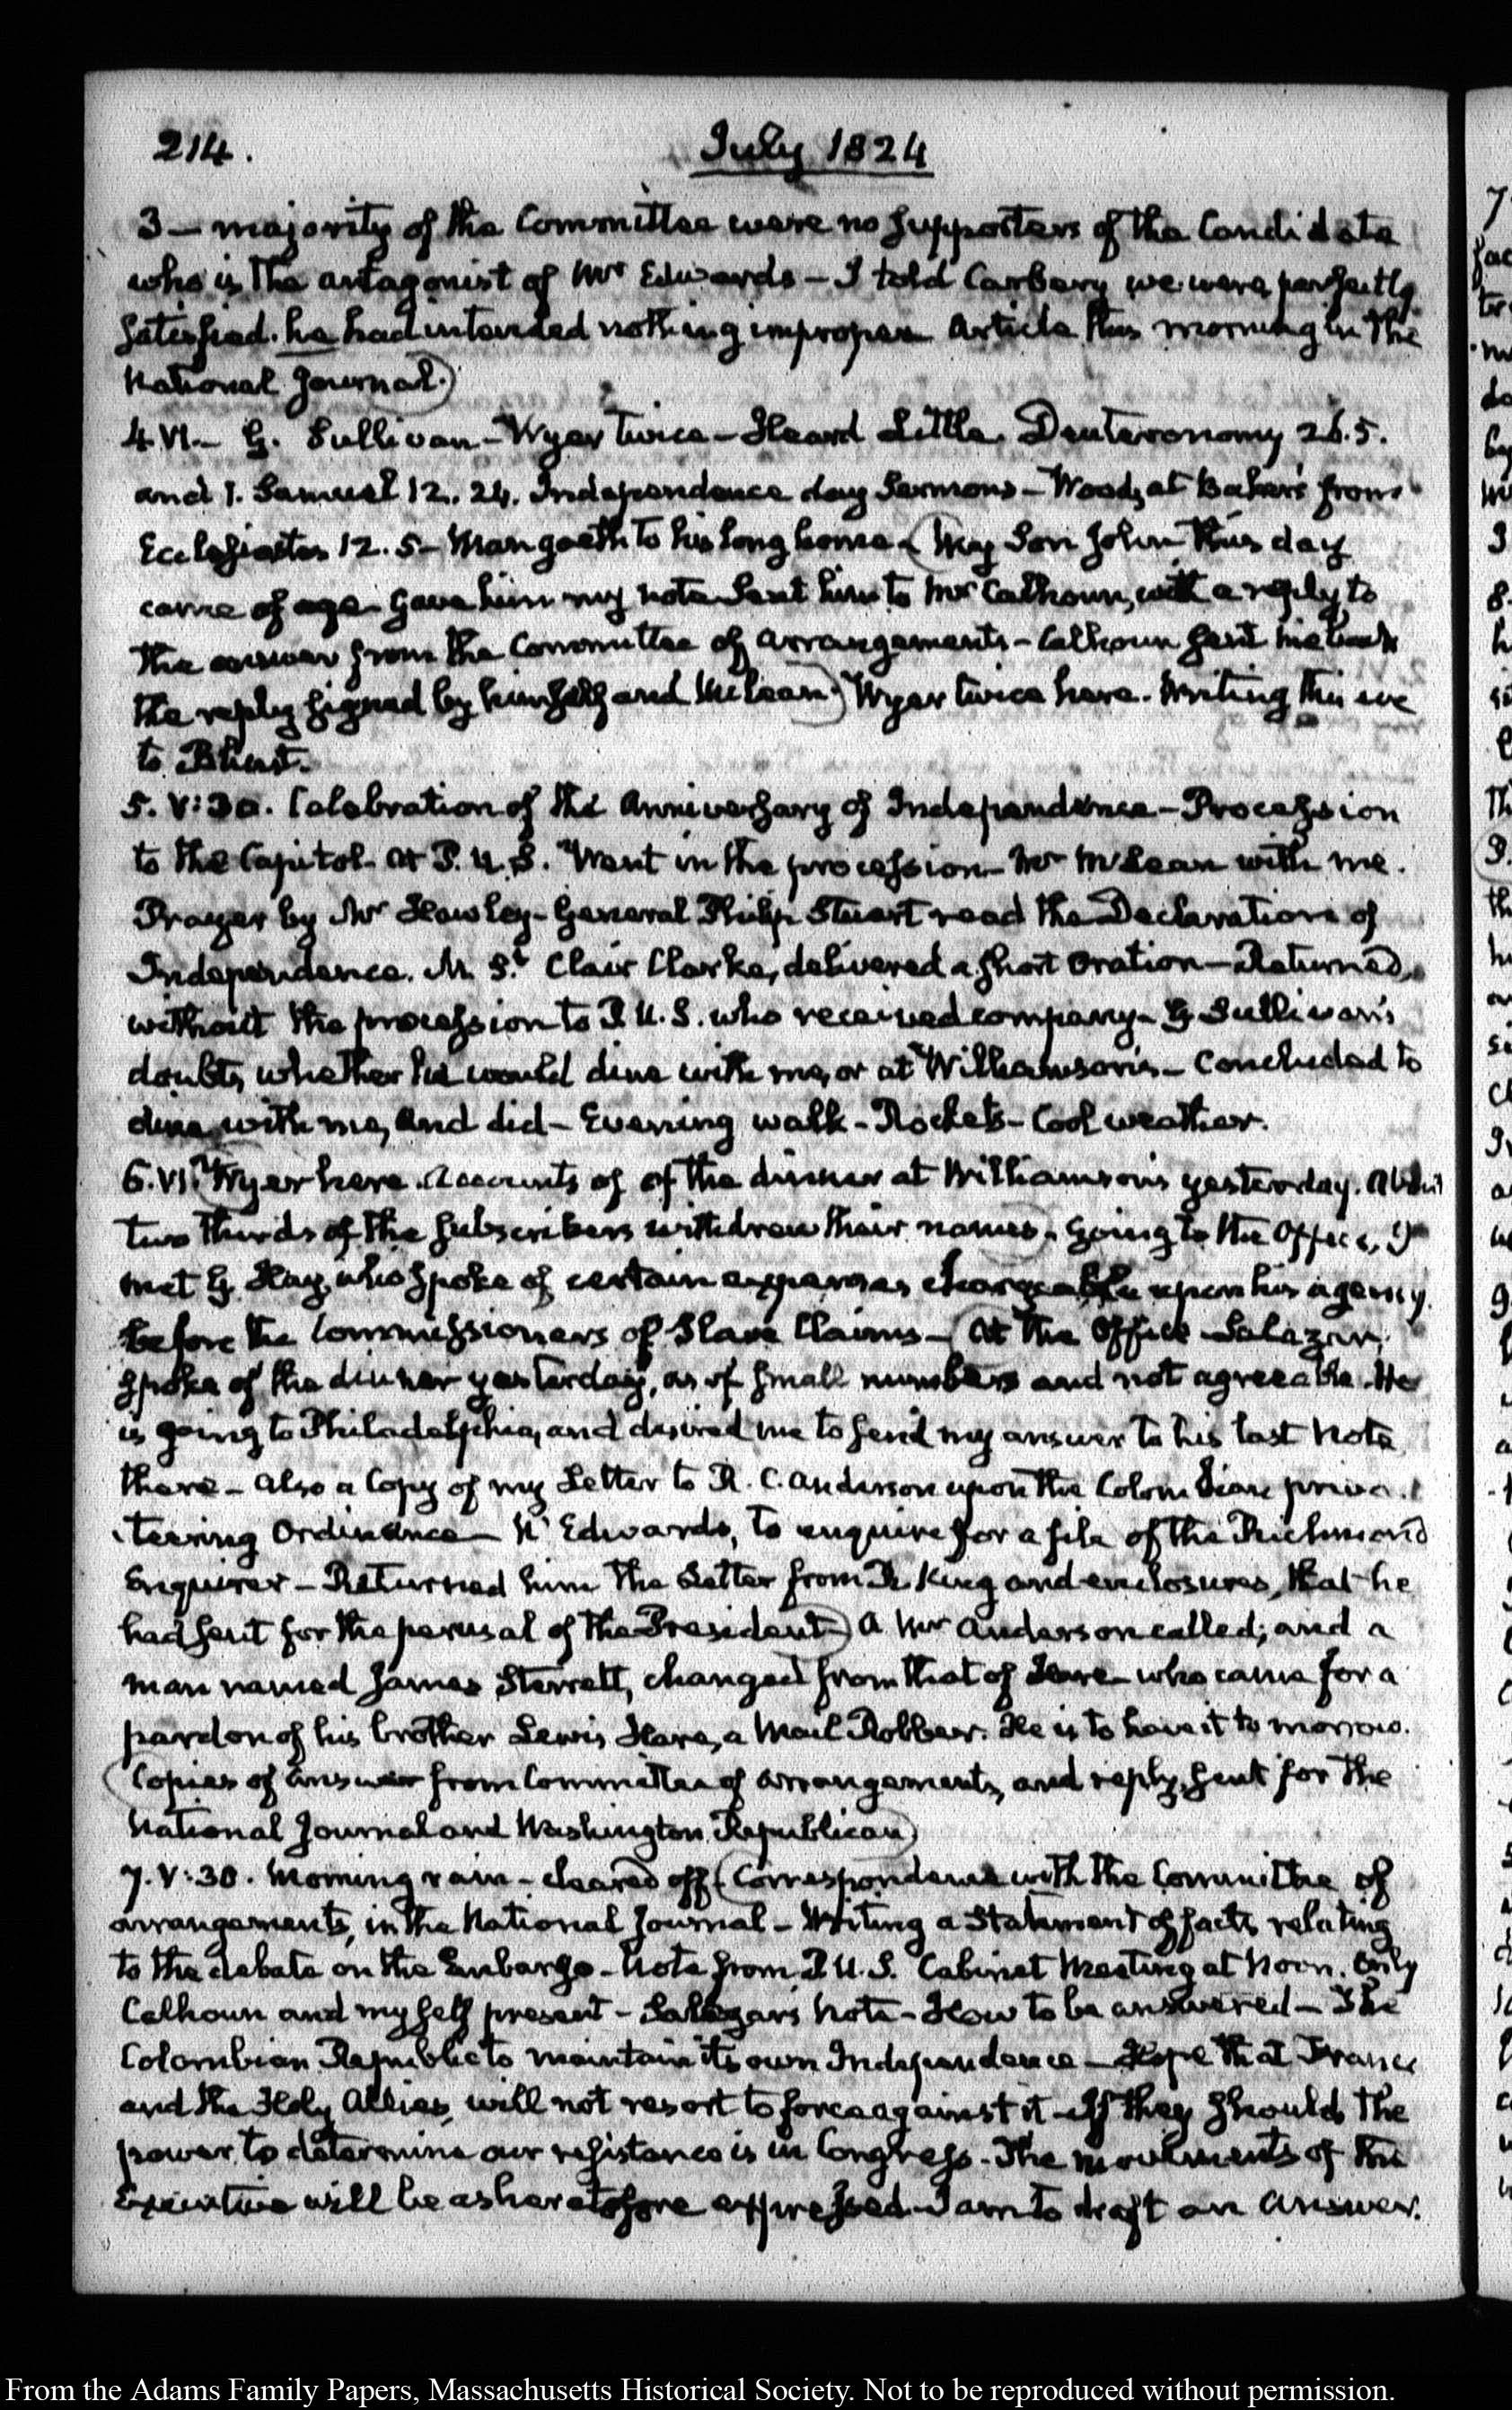 214.
July 1824
3 – majority of the Committee were no supporters of the Candidate
who is the antagonist of Mr Edwards – I told Carbery we were perfectly
satisfied. he had intended nothing improper Article this morning in the
National Journal.)
4. VI. – G. Sullivan – Wyer twice – Heard Little. Deuteronomy 26. 5.
and 1. Samuel 12. 24. Independence day Sermons – Woods at Baker's from
Ecclesiastes 12. 5 – Man goeth to his long home – (My Son John this day
came of age – Gave him my note Sent him to Mr Calhoun, with a reply to
the answer from the Committee of Arrangements – Calhoun sent me back
the reply signed by himself and McLean.) Wyer twice here. Writing this eve
to
5. V: 30. Celebration of the Anniversary of Independence – Procession
to the Capitol – At P. U. S. Went in the procession – Mr McLean with me.
Prayer by Mr Hawley – General Philip Stuart read the Declaration of
Independence. M. St Clair Clarke, delivered a short Oration – Returned,
without the procession to P. U. S. who received company – G Sullivan's
doubts whether he would dine with me, or at Williamson's – Concluded to
dine with me, and did – Evening walk – Rockets – Cool weather.
6. VI. (Wyer here. Accounts of of the dinner at Williamson's yesterday. About
two thirds of the subscribers withdrew their names). Going to the Office, I
met G. Hay, who spoke of certain expenses chargeable upon his agency
before the Commissioners of Slave Claims – (At the Office – Salazar,
spoke of the dinner yesterday, as of small numbers and not agreeable. He
is going to Philadelphia, and desired me to send my answer to his last Note
there – also a Copy of my Letter to R. C. Anderson upon the Colombian priva-
teering Ordinance – N. Edwards, to enquire for a file of the Richmond
Enquirer – Returned him the Letter from R. King and enclosures, that he
had sent for the perusal of the President –) A Mr Anderson called; and a
man named James Sterrett, changed from that of Hare – who came for a
pardon of his brother Lewis Hare, a Mail Robber. He is to have it to morrow.
(Copies of answer from Committee of arrangements, and reply, sent for the
National Journal and Washington Republican)
7. V: 30. Morning rain – cleared off. (Correspondence with the Committee of
arrangements, in the National Journal – Writing a Statement of facts relating
to the debate on the Embargo – Note from P. U. S. Cabinet Meeting at Noon. Only
Calhoun and myself present – Salazar's Note – How to be answered – The
Colombian Republic to maintain its own Independence – Hope that France
and the Holy Allies, will not resort to force against it – If they should, the
power to determine our resistance is in Congress. The movements of the
Executive will be as heretofore expressed – I am to draft an answer.
From the Adams Family Papers, Massachusetts Historical Society. Not to be reproduced without permission.